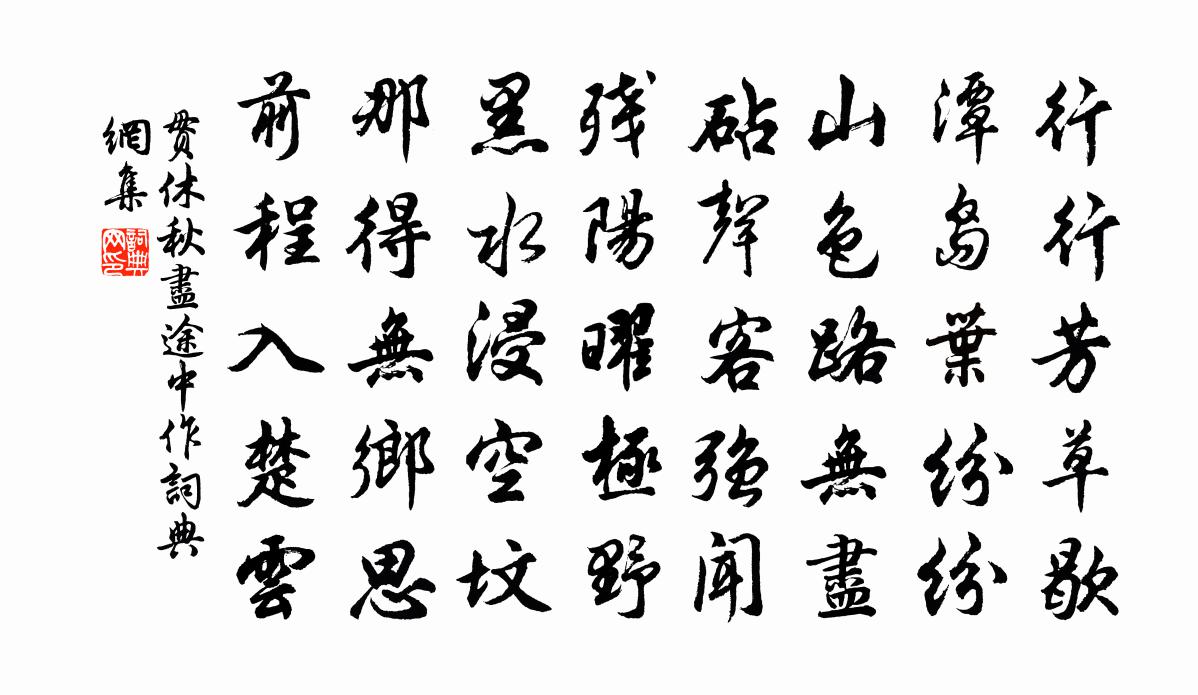 行行芳草歇
潭島葉紛紛
山色路無盡
砧聲客強聞
残陽曜極野
黑水浸空墳
那得無鄉思
前程入楚雲
贯休秋盡途中作詞典
網集
詞典
网印